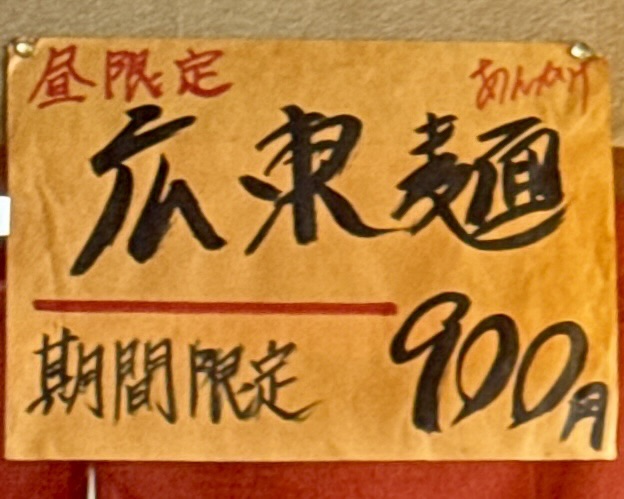 昼限定 あんかけ
広東麺
期間限定 900円